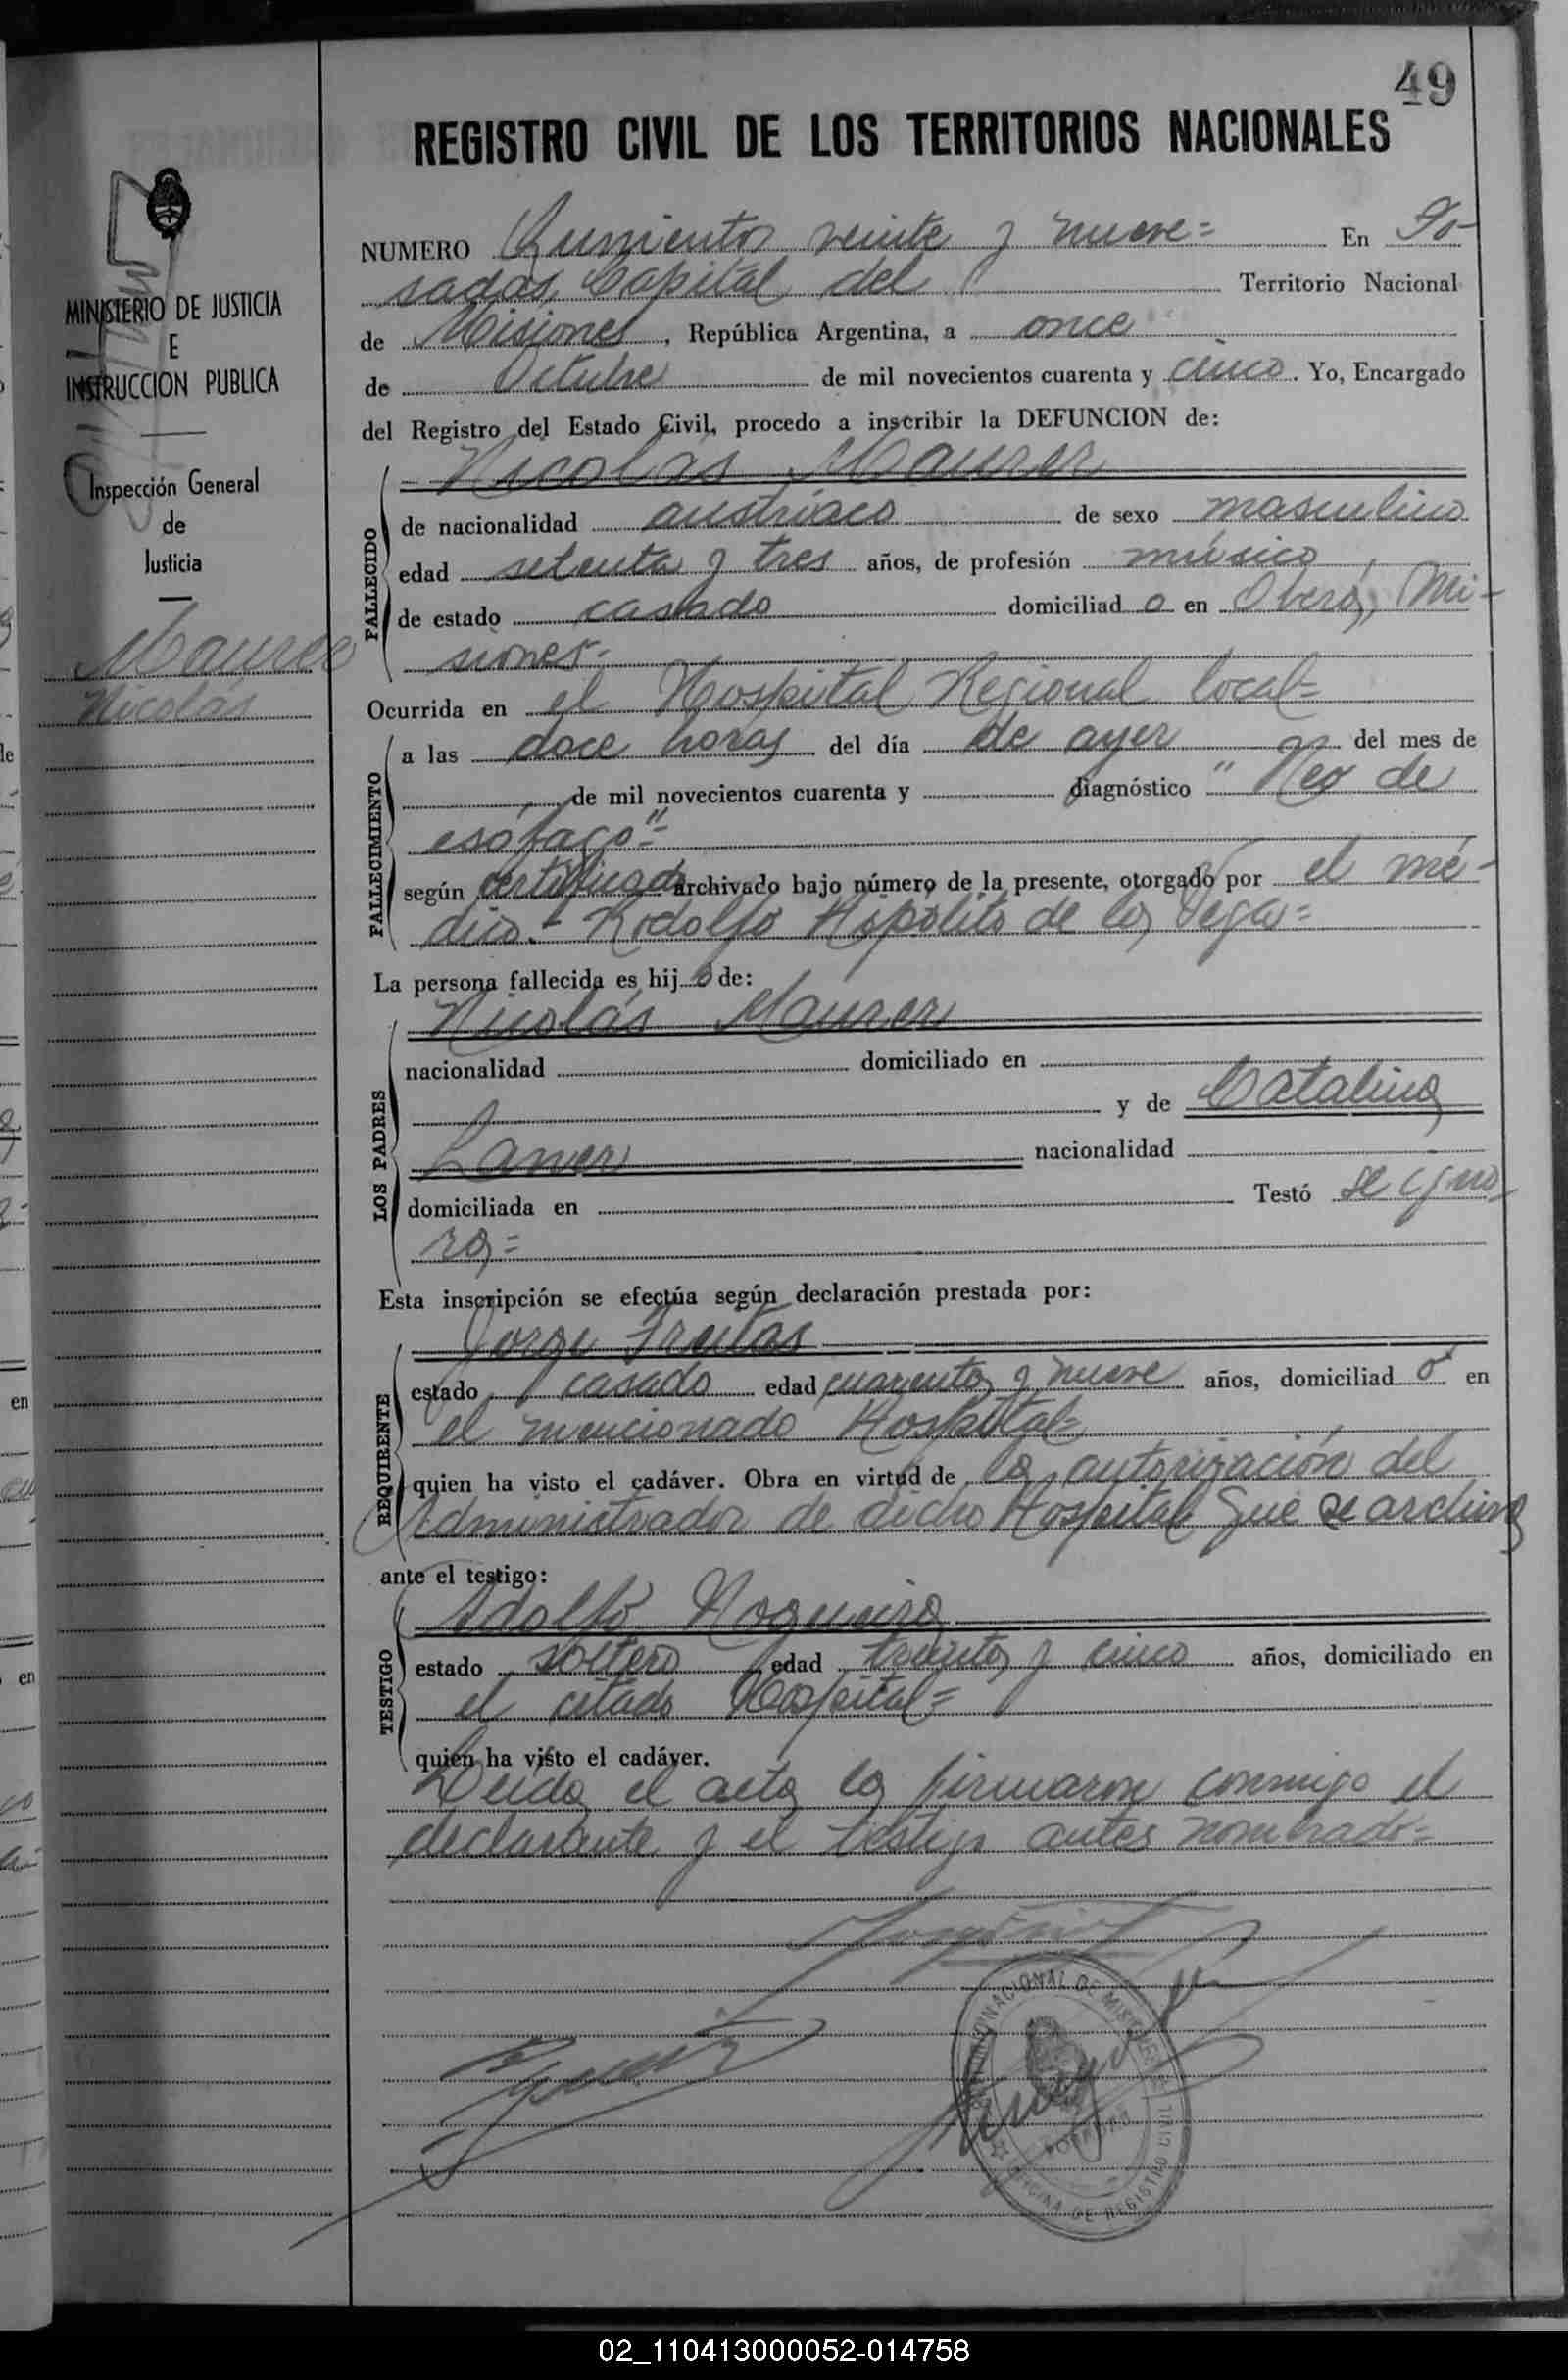 49
REGISTRO CIVIL DE LOS TERRITORIOS NACIONALES
NUMERO Quinientos veinte y nueve= En Po-
sadas, Capital del Territorio Nacional
de Misiones, República Argentina, a once
de Octubre de mil novecientos cuarenta y cinco. Yo, Encargado
del Registro del Estado Civil, procedo a inscribir la DEFUNCION de:
Nicolás Maurer
FALLECIDO
de nacionalidad austríaco de sexo masculino
edad setenta y tres años, de profesión músico,
de estado casado domiciliad o en Oberá, Mi-
siones-
Ocurrida en el Hospital Regional local=
FALLECIMIENTO
a las doce horas del día de ayer del mes de
de mil novecientos cuarenta y diagnóstico "Neo de
esófago"=
según certificado archivado bajo número de la presente, otorgado por el mé-
dico.- Rodolfo Hipólito de la Vega=
La persona fallecida es hij o de:
Nicolás Maurer
LOS PADRES
nacionalidad domiciliado en
y de Catalina
Lawer nacionalidad
domiciliada en Testó se igno-
ra=
Esta inscripción se efectúa según declaración prestada por:
Jorge Freitas
REQUIRENTE
estado casado edad cuarenta y nueve años, domiciliad o en
el mencionado Hospital=
quien ha visto el cadáver. Obra en virtud de la autorización del
Administrador de dicho Hospital que se archiva
ante el testigo:
Adolfo Nogueira
TESTIGO
estado soltero edad treinta y cinco años, domiciliado en
el citado Hospital=
quien ha visto el cadáver.
Leída el acta la firmaron conmigo el
declarante y el testigo antes nombrado=
MINISTERIO DE JUSTICIA
E
INSTRUCCION PUBLICA
Inspección General
de
Justicia
Maurer
Nicolás
OFICINA DE REGISTRO CIVIL
POSADAS
02_110413000052-014758